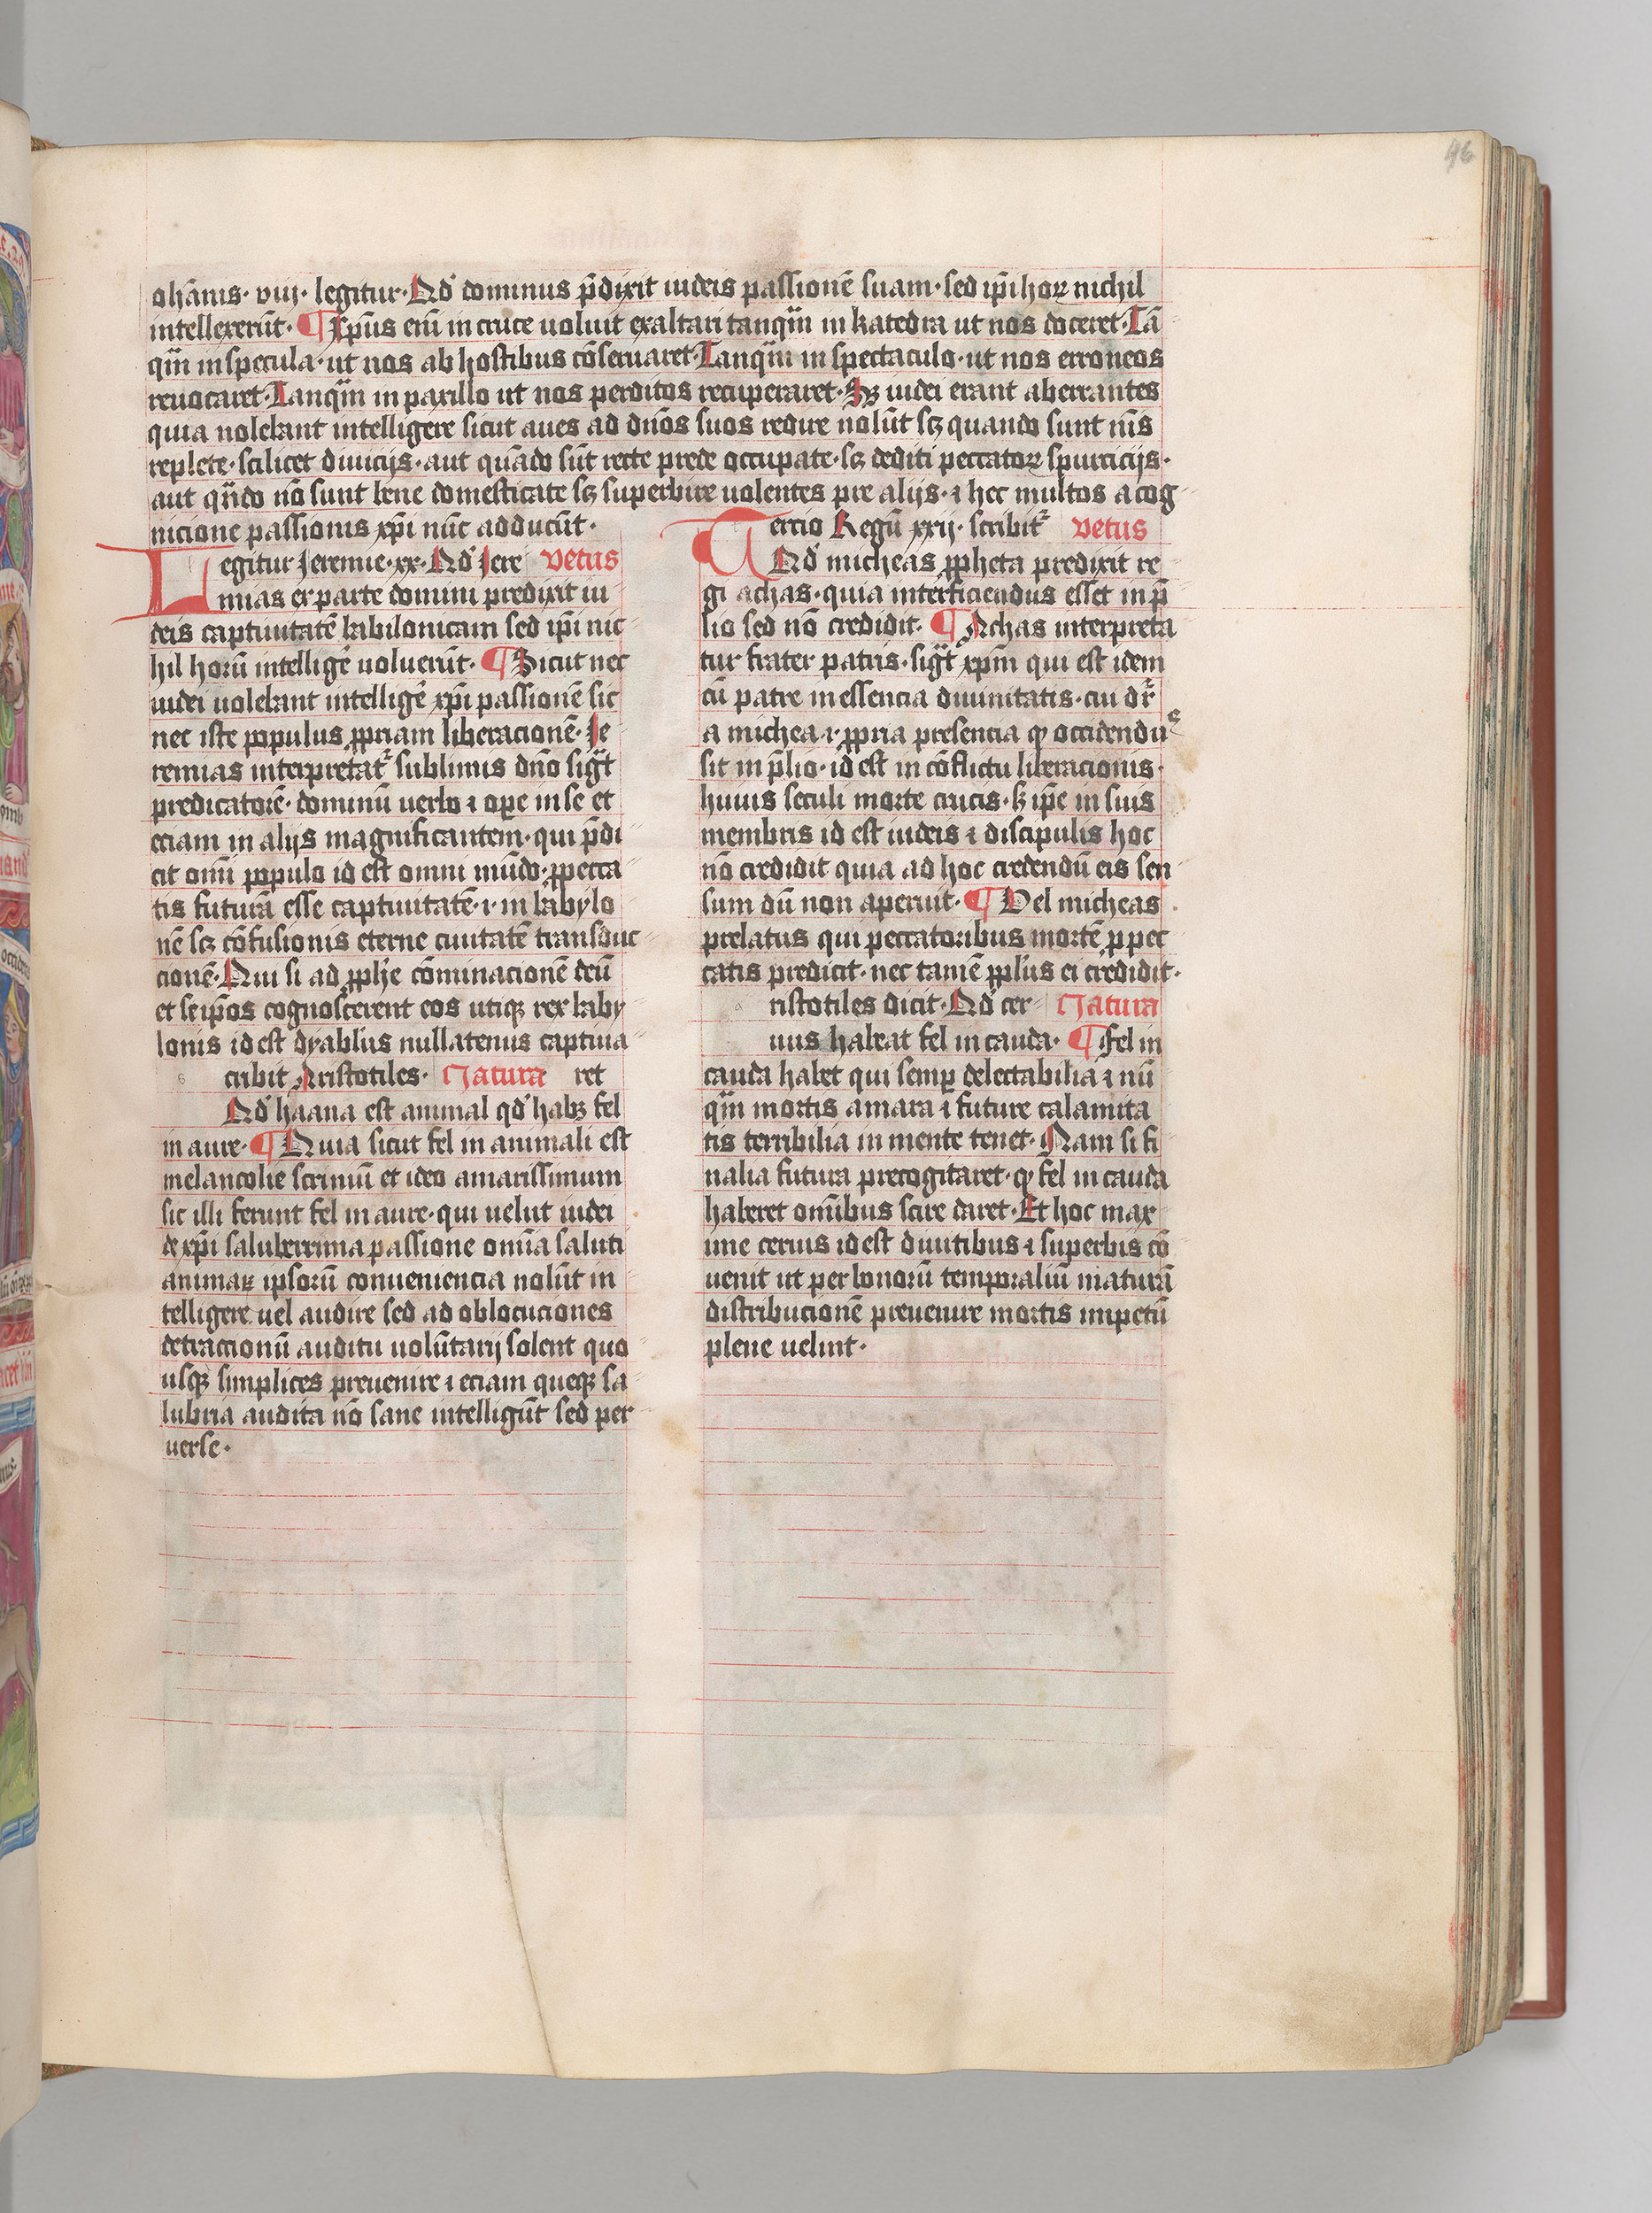 46
ohānis · viij · legitur · Qd' dominus p̄dixit iudeis passionē suam · sed ip̄i hoꝝ nichil
intellexerūt · ¶ Xp̄us eni͞ in cruce uoluit exaltari tanq̄m in katedra ut nos doceret · Tā
q̄m in specula · ut nos ab hostibus cōseruaret · Tanq̄m in spectaculo · ut nos erroneos
reuocaret · Tanq̄m in paxillo ut nos perditos recuperaret · Sꝫ iudei erant aberrantes
quia nolebant intelligere sicut aues ad dn̄os suos redire nolūt sꝫ quando sunt nīs
replete · scilicet diuicijs · aut quādo sūt recte prede occupate · sꝫ dediti peccatoꝝ spurcicijs ·
aut qn̄do nō sunt bene domesticate sꝫ superbire uolentes pre alijs · ⁊ hec multos a cog
nicione passionis xp̄i nūc adducūt ·
Legitur Jeremie · xx · Qd' Jere vetus
mias ex parte domini predixit iu
deis captiuitatē babilonicam sed ip̄i nic
hil horū intelligē uoluerūt · ¶ Sicut nec
iudei uolebant intelligē xp̄i passionē sic
nec iste populus ꝓpriam liberacionē · Je
remias interpretat᷑ sublimis dn̄o sig̅t
predicatorē · dominū uerbo ⁊ oꝑe in se et
eciam in alijs magnificantem · qui p̄di
cit omī populo id est omni mūdo · ꝓ pecca
tis futurā esse captiuitatē · i · in babylo
nē sꝫ cōfusionis eterne ciuitatē transduc
cionē · Qui si ad ꝓph̄e cōminacionē deū
et se ip̄os cognoscerent eos utiqꝫ rex baby
lonis id est dyablus nullatenus captiua
cribit Aristotiles · Natura ret
Qd' haana est animal qd' habꝫ fel
in aure · ¶ Quia sicut fel in animali est
melancolie scriniū et ideo amarissimum
sic illi ferunt fel in aure · qui uelut iudei
de xp̄i saluberrima passione omīa saluti
animaꝝ ipsorū conueniencia nolūt in
telligere uel audire sed ad oblocuciones
detraccionū auditu uolūtarij solent quo
usqꝫ simplices preuenire ⁊ eciam queqꝫ sa
lubria audita nō sane intelligūt sed per
uerse ·
Tercio Regū xxij · scribit᷑ vetus
Qd' micheas ꝓpheta predixit re
gi achas · quia interficiendus esset in p̄
lio sed nō credidit · ¶ Achas interpreta
tur frater patris · sig̅t xp̄m qui est idem
cū patre in essencia diuinitatis · cui dr̄
a michea · i · ꝓpria presencia qꝫ occidendus
sit in p̄lio · id est in cōflictu liberacionis ·
huius seculi morte crucis · sꝫ ip̄e in suis
membris id est iudeis ⁊ discipulis hoc
nō credidit quia ad hoc credendū eis sen
sum dū non aperuit · ¶ Vel micheas
prelatus qui peccatoribus mortē ꝓ pec
catis predicit · nec tamē ꝓpl'us ei credidit ·
ristotiles dicit · Qd' cer Natura
uus habeat fel in cauda · ¶ Fel in
cauda habet qui semꝑ delectabilia ⁊ nū
q̄m mortis amara ⁊ future calamita
tis terribilia in mente tenet · Nam si fi
nalia futura precogitaret · qꝫ fel in cauda
haberet omībus scire daret · Et hoc max
ime ceruis id est diuitibus ⁊ superbis cō
uenit ut per bonorū temporaliū maturā
distribucionē preuenire mortis impetū
plene uelint ·